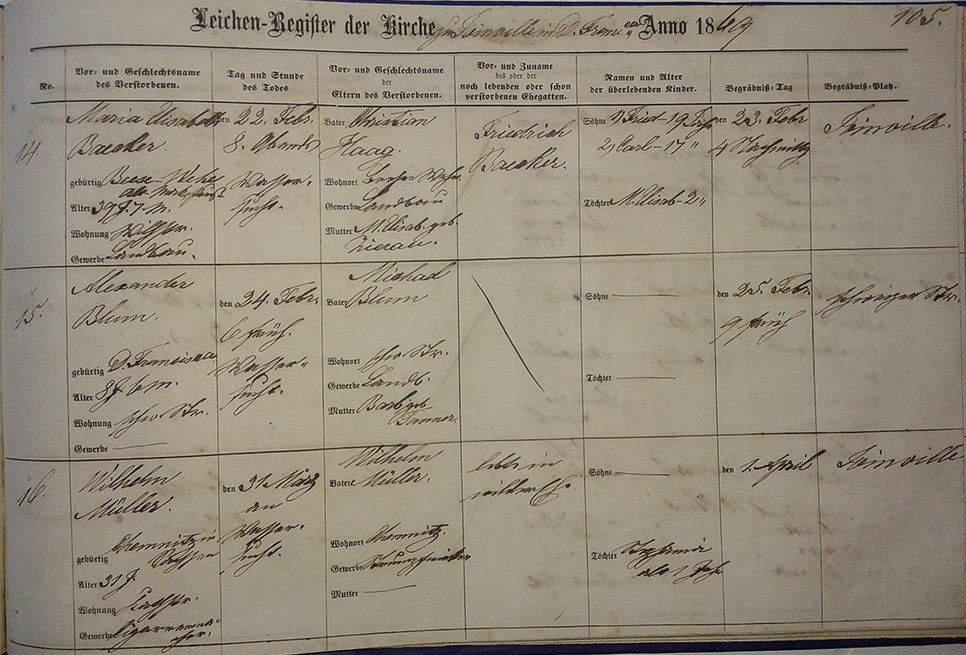 Leichen-Register der Kirche zu Joinville in D. Franc.ca Anno 1869
105.
No.
Vor- und Geschlechtsname des Verstorbenen.
Tag und Stunde des Todes
Vor- und Geschlechtsname der Eltern des Verstorbenen.
Vor- und Zuname des oder der noch lebenden oder schon verstorbenen Ehegatten.
Namen und Alter der überlebenden Kinder.
Begräbniß-Tag
Begräbniß-Platz.
14.
Maria Elisabeth
Baecker.
gebürtig
Alter 39 J. 7 M.
Wohnung
Gewerbe Landbau.
den 22. Febr.
8. Abends
Wasser-
sucht.
Vater Christian
Haag.
Wohnort
Gewerbe Landbau
Mutter M. Elisab. geb.
Friedrich
Baecker.
Söhne 1) Fried - 19 J
2) Carl - 17 "
Töchter M. Elisab - 2 "
den 23. Febr
4
Joinville.
15.
Alexander
Blum.
gebürtig D. Francisca
Alter 8 J. 6 M.
Wohnung Str.
Gewerbe
den 24. Febr.
6 früh.
Wasser-
sucht.
Vater Michael
Blum
Wohnort Str.
Gewerbe Landb.
Mutter Barb. geb
Söhne
Töchter
den 25. Febr.
9 früh
Str.
16.
Wilhelm
Müller.
gebürtig Chemnitz in
Sachsen
Alter 31 J.
Wohnung
Gewerbe Cigarrenma-
cher.
den 31. März
an
Wasser-
sucht.
Vater Wilhelm
Müller.
Wohnort Chemnitz.
Gewerbe
Mutter
lebte in
wilder Ehe.
Söhne
Töchter
alt 1 Jahr
den 1. April
Joinville